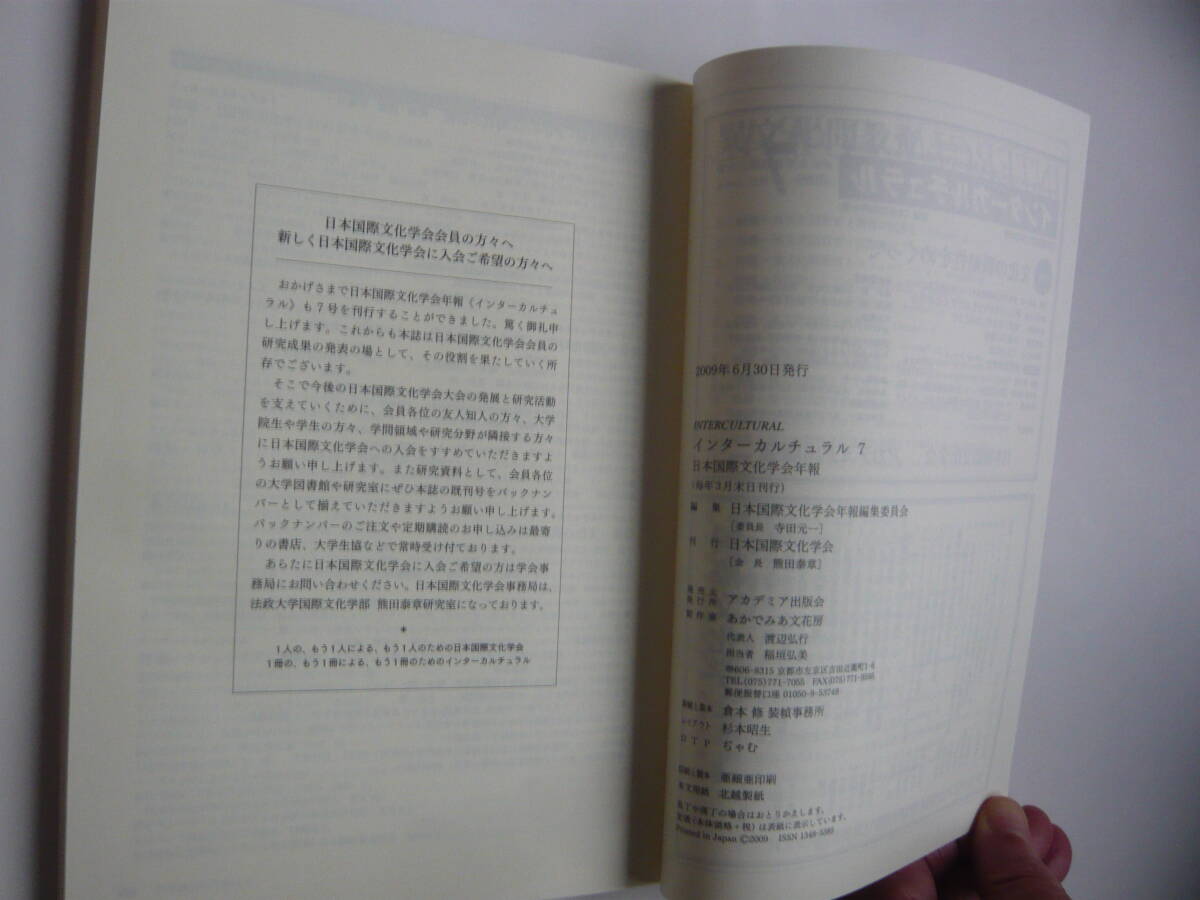 日本国際文化学会会員の方々へ
新しく日本国際文化学会に入会ご希望の方々へ
おかげさまで日本国際文化学会年報《インターカルチュ
ラル》も7号を刊行することができました。篤く御礼申
し上げます。これからも本誌は日本国際文化学会会員の
研究成果の発表の場として、その役割を果たしていく所
存でございます。
そこで今後の日本国際文化学会大会の発展と研究活動
を支えていくために、会員各位の友人知人の方々、大学
院生や学生の方々、学問領域や研究分野が隣接する方々
に日本国際文化学会への入会をすすめていただきますよ
うお願い申し上げます。また研究資料として、会員各位
の大学図書館や研究室にぜひ本誌の既刊号をバックナン
バーとして揃えていただきますようお願い申し上げます。
バックナンバーのご注文や定期購読のお申し込みは最寄
りの書店、大学生協などで常時受け付ております。
あらたに日本国際文化学会に入会ご希望の方は学会事
務局にお問い合わせください。日本国際文化学会事務局は、
法政大学国際文化学部 熊田泰章研究室になっております。
*
1人の、もう1人による、もう1人のための日本国際文化学会
1冊の、もう1冊による、もう1冊のためのインターカルチュラル
2009年6月30日発行
INTERCULTURAL
インターカルチュラル 7
日本国際文化学会年報
(毎年3月末日刊行)
編 集 日本国際文化学会年報編集委員会
[委員長 寺田元一]
刊 行 日本国際文化学会
[会 長 熊田泰章]
発行所 アカデミア出版会
製作所 あかでみあ文花房
代表人 渡辺弘行
担当者 稲垣弘美
〒606-8315 京都市左京区吉田近衛町1-6
TEL(075)771-7055 FAX(075)771-
郵便振替口座 01050-9-53748
倉本 修 装幀事務所
レイアウト 杉本昭生
DTP ぢゃむ
亜細亜印刷
本文用紙 北越製紙
乱丁や落丁の場合はおとりかえします。
定価(本体価格+税)は表紙に表示しています。
Printed in Japan ©2009 ISSN 1348-